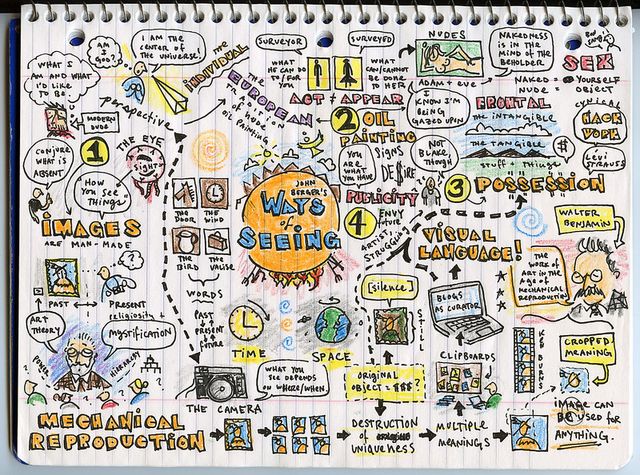 WHAT I
AM AND WHAT
I'D LIKE TO
BE.
AM
I
GOD?
I AM THE
CENTER OF
THE UNIVERSE!
THE
INDIVIDUAL
perspective
MODERN
DUDE
1
THE EYE
Sight
CONJURE WHAT
IS
ABSENT
HOW
YOU SEE
THINGS
IMAGES
ARE MAN-MADE
PAST
PRESENT
religiosity +
MYSTIFICATION
ART
THEORY
POWER
HIERARCHY
THE
EUROPEAN
TRADITION
OF
OIL PAINTING
SURVEYOR
SURVEYED
WHAT
HE CAN DO
TO/FOR
YOU
WHAT
CAN/CANNOT
BE DONE
TO HER
ACT ≠ APPEAR
NUDES
ADAM + EVE
I
KNOW I'M
BEING
GAZED UPON
NAKEDNESS
IS IN THE
MIND OF THE
BEHOLDER
NAKED = YOURSELF
NUDE = OBJECT
SEX
2 OIL
PAINTING
YOU
ARE
WHAT YOU
HAVE
SIGNS
DE$IRE
NOT
LIKE DAKE
THOUGH
FRONTAL
THE INTANGIBLE
THE TANGIBLE
STUFF + THINGS
$
CYNICAL
HACK
WORK
LEVI
STRAUSS
3 POSSESSION
PUBLICITY
4 ENVY
FUTURE
ARTIST,
STRUGGLING
JOHN
BERGER'S
WAYS
of
SEEING
THE
DOOR
THE
WIND
THE
BIRD
THE
VALISE
WORDS
PAST
PRESENT
FUTURE
TIME
SPACE
VISUAL
LANGUAGE!
WALTER
BENJAMIN
THE
WORK OF
ART IN THE
AGE OF
MECHANICAL
REPRODUCTION
[silence]
STILL
BLOGS
AS CURATOR
CLIPBOARDS
KEN BURNS
CROPPED
MEANING
WHAT YOU
SEE DEPENDS
ON WHERE/WHEN.
THE CAMERA
ORIGINAL
OBJECT = $$$?
MECHANICAL
REPRODUCTION
DESTRUCTION
OF
UNIQUENESS
MULTIPLE
MEANINGS
IMAGE CAN
BE USED FOR
ANYTHING.